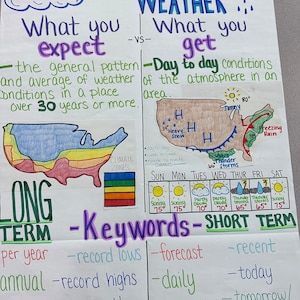 WEATHER
What you
expect
-vs-
What you
get
-the general pattern
and average of weather
conditions in a place
over 30 years or more.
-Day to day conditions
of the atmosphere in an
area.
80°
H
H
H
Freezing
Rain
SUN MON TUES WED THU FRI SAT
75° 75° 70° 70° 65° 65° 75°
LONG
TERM
-Keywords-
SHORT TERM
per year
-record lows
annual
-record highs
-forecast
-recent
-daily
-today
tomorrow/